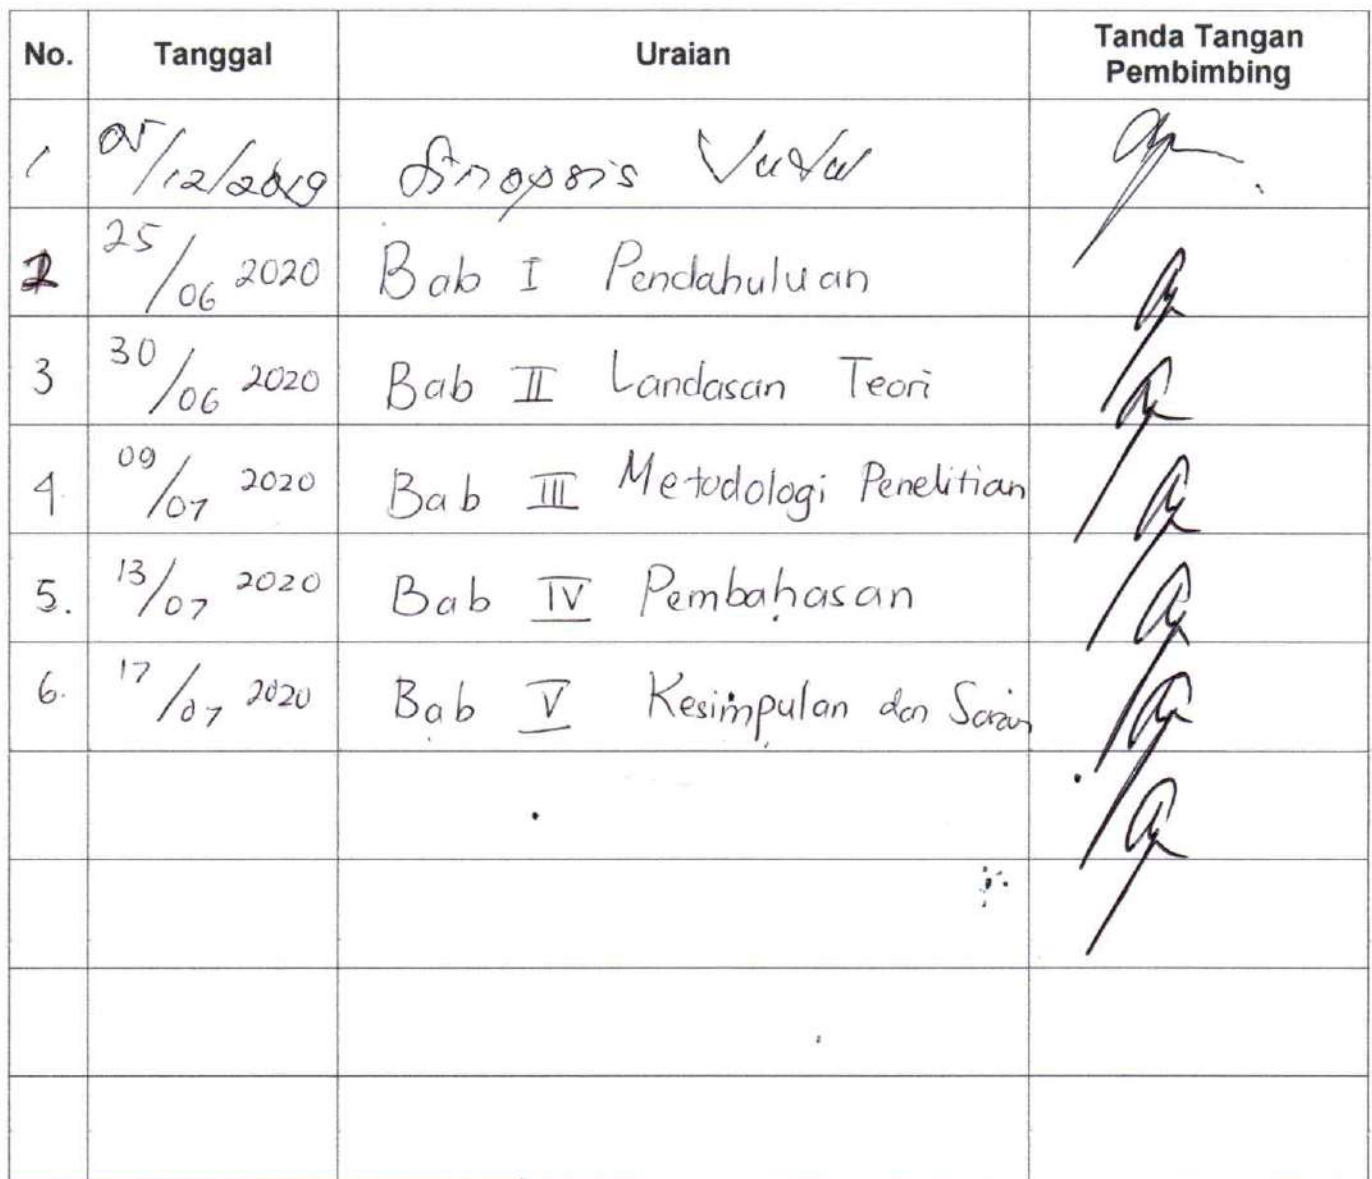 No. Tanggal Uraian Tanda Tangan Pembimbing
1 05/12/2019 Sinopsis
2 25/06 2020 Bab I Pendahuluan
3 30/06 2020 Bab II Landasan Teori
4. 09/07 2020 Bab III Metodologi Penelitian
5. 13/07 2020 Bab IV Pembahasan
6. 17/07 2020 Bab V Kesimpulan dan Saran